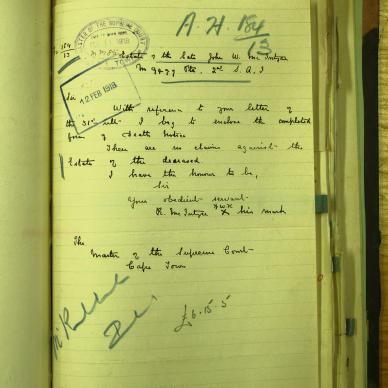 A.H. 184/13
184/13
MASTER OF THE SUPREME COURT
1918
12 FEB 1918
Estate of the late John W. McIntyre
No 9477 Pte. 2nd S.A.I
Sir
With reference to your letter of
the 31st ult. I beg to enclose the completed
form of Death Notice
There are no claims against the
Estate of the deceased
I have the honour to be,
Sir
Your obedient servant
R. McIntyre X his mark
The
Master of the Supreme Court
Cape Town
£6.15.5